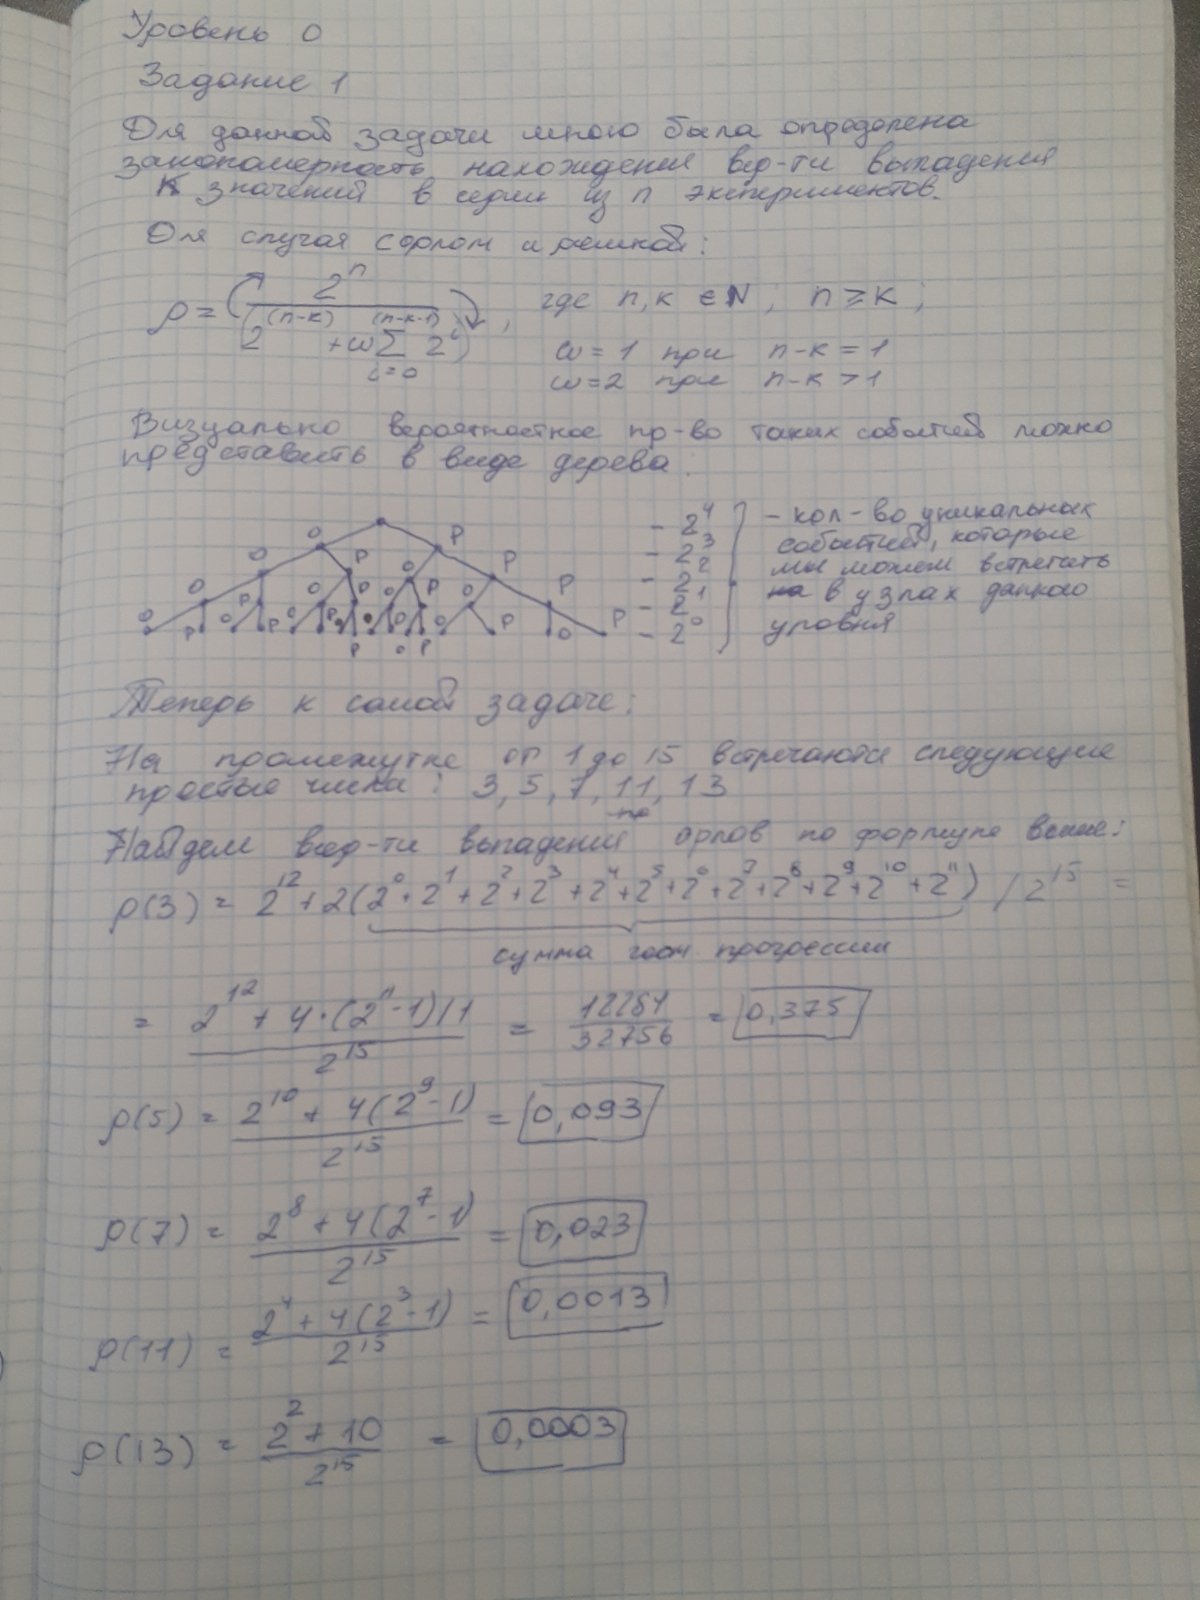 Уровень 0
Задание 1
Для данной задачи мною была определена
закономерность нахождения вер-ти выпадения
К значений в серии из n экспериментов.
Для случая с орлом и решкой:
ρ = ( 2^n / (2^(n-k) + ω∑ 2^i) ), где n, k ∈ N ; n ≥ k ;
(n-k-1)
i=0
ω = 1 при n-k = 1
ω = 2 при n-k > 1
Визуально вероятностное пр-во таких событий можно
представить в виде дерева:
- 2^4 - кол-во уникальных
- 2^3 событий, которые
- 2^2 мы можем встретить
- 2^1 в узлах данного
- 2^0 уровня
Теперь к самой задаче:
На промежутке от 1 до 15 встречаются следующие
простые числа: 3, 5, 7, 11, 13
Найдем вер-ти выпадения орлов по формуле выше:
ρ(3) = 2^12 + 2(2^0 + 2^1 + 2^2 + 2^3 + 2^4 + 2^5 + 2^6 + 2^7 + 2^8 + 2^9 + 2^10 + 2^11) / 2^15 =
сумма геом прогрессии
= (2^12 + 4·(2^11 - 1)/1) / 2^15 = 12284 / 32756 = 0,375
ρ(5) = (2^10 + 4(2^9 - 1)) / 2^15 = 0,093
ρ(7) = (2^8 + 4(2^7 - 1)) / 2^15 = 0,023
ρ(11) = (2^4 + 4(2^3 - 1)) / 2^15 = 0,0013
ρ(13) = (2^2 + 10) / 2^15 = 0,0003